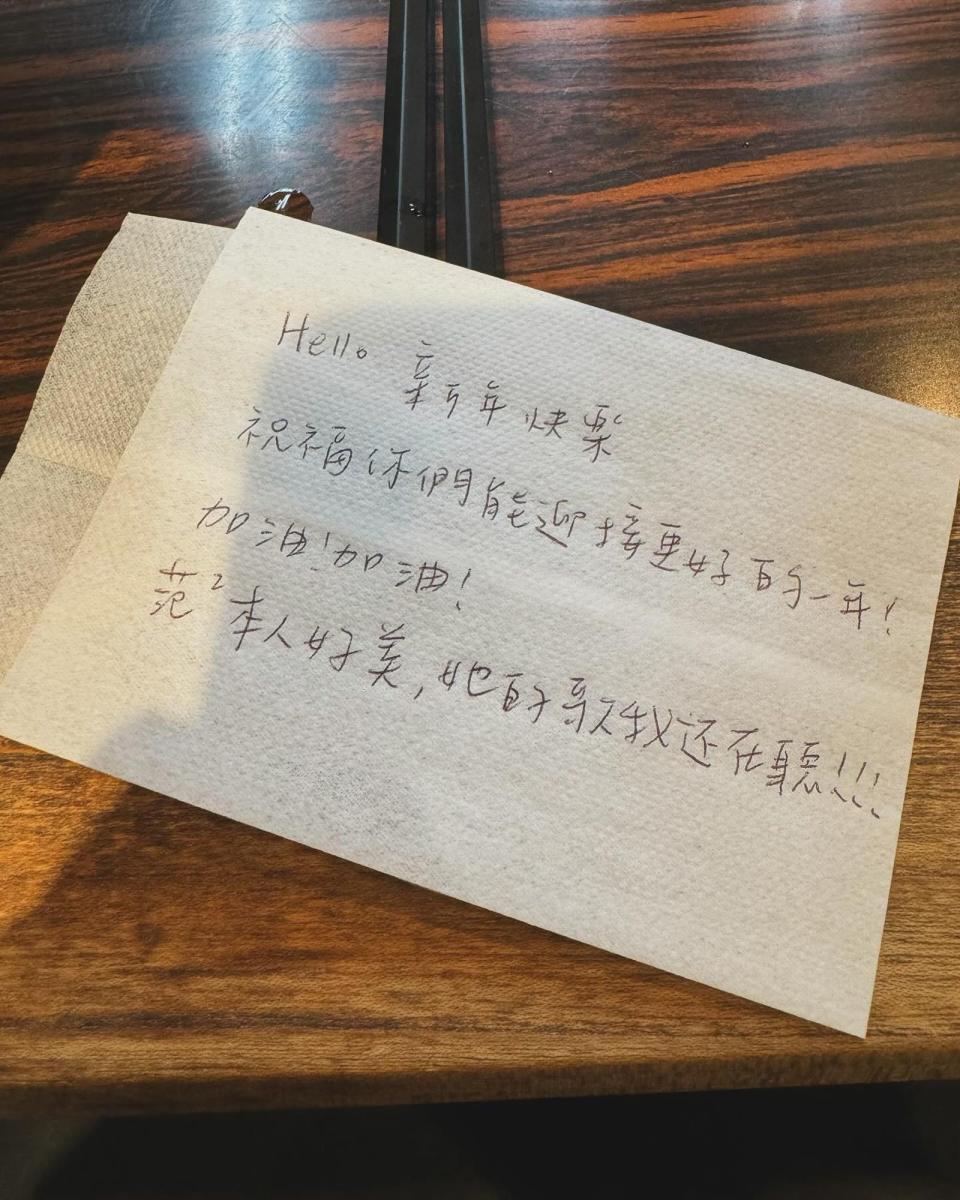 Hello 新年快樂
祝福你們能迎接更好的一年!
加油!加油!
范²本人好美,她的歌我还在聽!!!